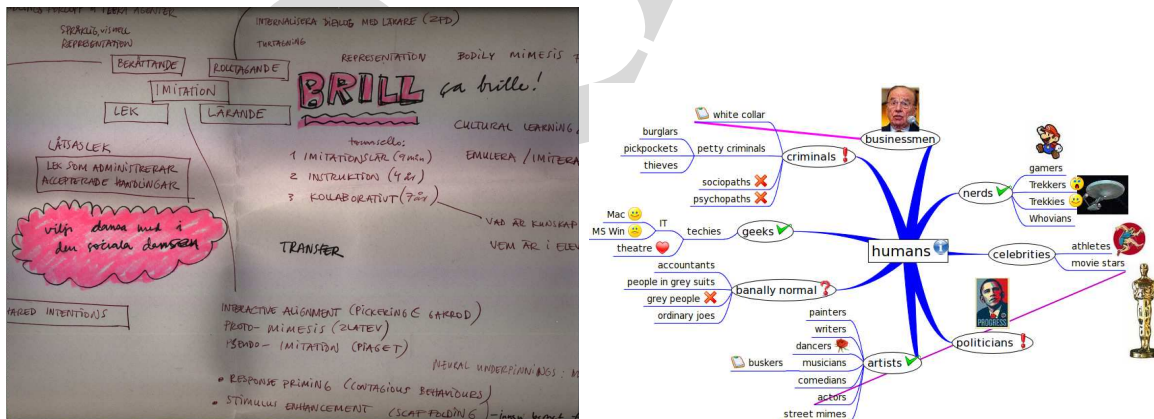 SPRÅKLIG, VISUELL
REPRESENTATION
BERÄTTANDE
ROLLTAGANDE
IMITATION
LEK
LÄRANDE
LÅTSASLEK
LEK SOM ADMINISTRERAR
ACCEPTERADE HANDLINGAR
vilja dansa med i
den sociala dansen
SHARED INTENTIONS
INTERNALISERA DIALOG MED LÄRARE (ZPD)
TURTAGNING
REPRESENTATION
BODILY MIMESIS
BRILL
ça brille!
CULTURAL LEARNING
tomasello:
1 IMITATIONSLÄR (9 mån)
EMULERA / IMITERA
2 INSTRUKTION (4 år)
3 KOLLABORATIVT (7 år)
VAD ÄR KUNSKAP
TRANSFER
VEM ÄR I
INTERACTIVE ALIGNMENT (PICKERING & GARROD)
PROTO-MIMESIS (ZLATEV)
PSEUDO-IMITATION (PIAGET)
NEURAL UNDERPINNINGS:
• RESPONSE PRIMING (CONTAGIOUS BEHAVIOURS)
• STIMULUS ENHANCEMENT (SCAFFOLDING)
humans
businessmen
criminals
white collar
petty criminals
burglars
pickpockets
thieves
sociopaths
psychopaths
geeks
techies
IT
Mac
MS Win
theatre
banally normal
accountants
people in grey suits
grey people
ordinary joes
artists
painters
writers
dancers
musicians
buskers
comedians
actors
street mimes
nerds
gamers
Trekkers
Trekkies
Whovians
celebrities
athletes
movie stars
politicians
PROGRESS